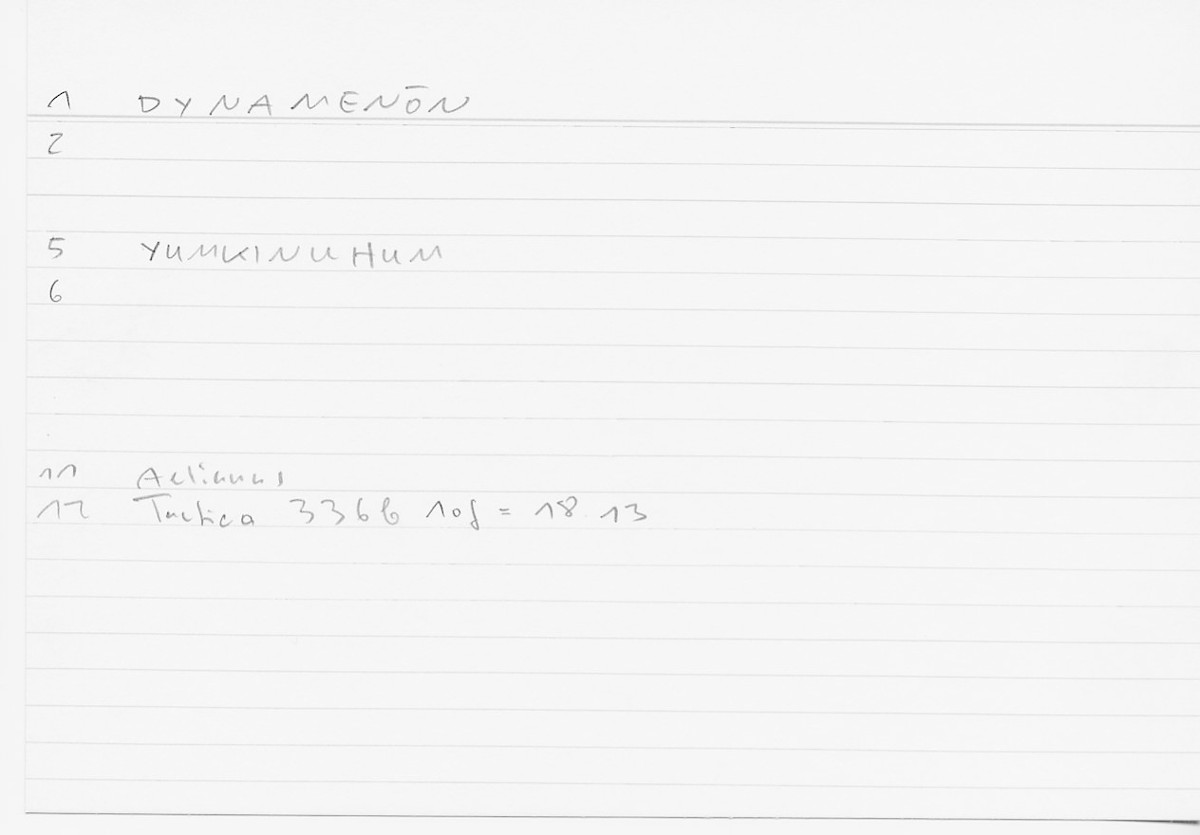 1 DYNAMENŌN
2
5 YUMKINUHUM
6
11 Aelianus
12 Tactica 336b 10f = 18.13